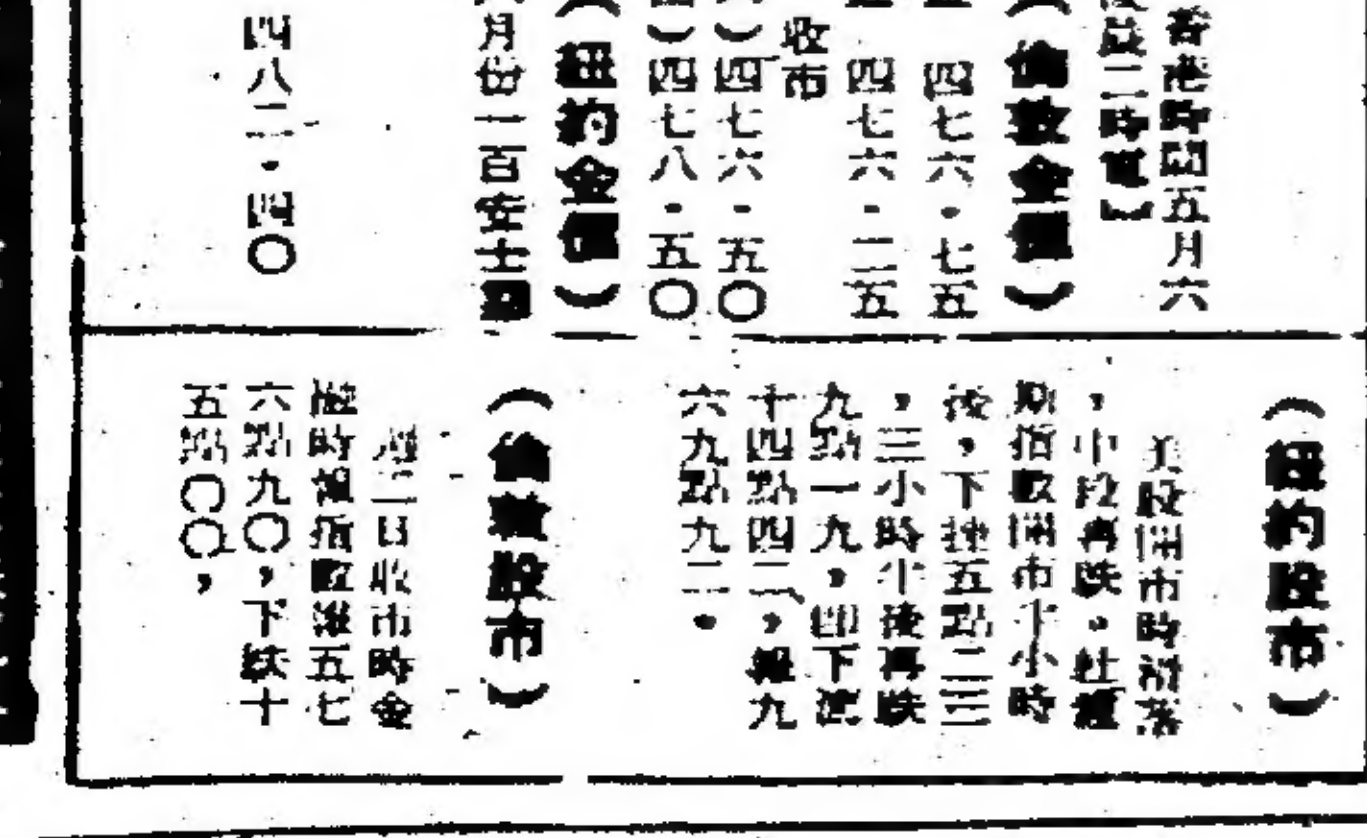 香港時間五月六
二時電】
（倫敦金價）
四七六・七五
四七六・二五
收市
）四七六・五〇
）四七八・五〇
（紐約金價）
月份一百安士
四八二・四〇
（紐約股市）
美股開市時滑落
，中段再跌。杜瓊
期指數開市半小時
後，下挫五點二三
，三小時半後再跌
九點一九，即下瀉
十四點四二，報九
六九點九二。
（倫敦股市）
週二日收市時金
融時報指數進五七
六點九〇，下跌十
五點〇〇，